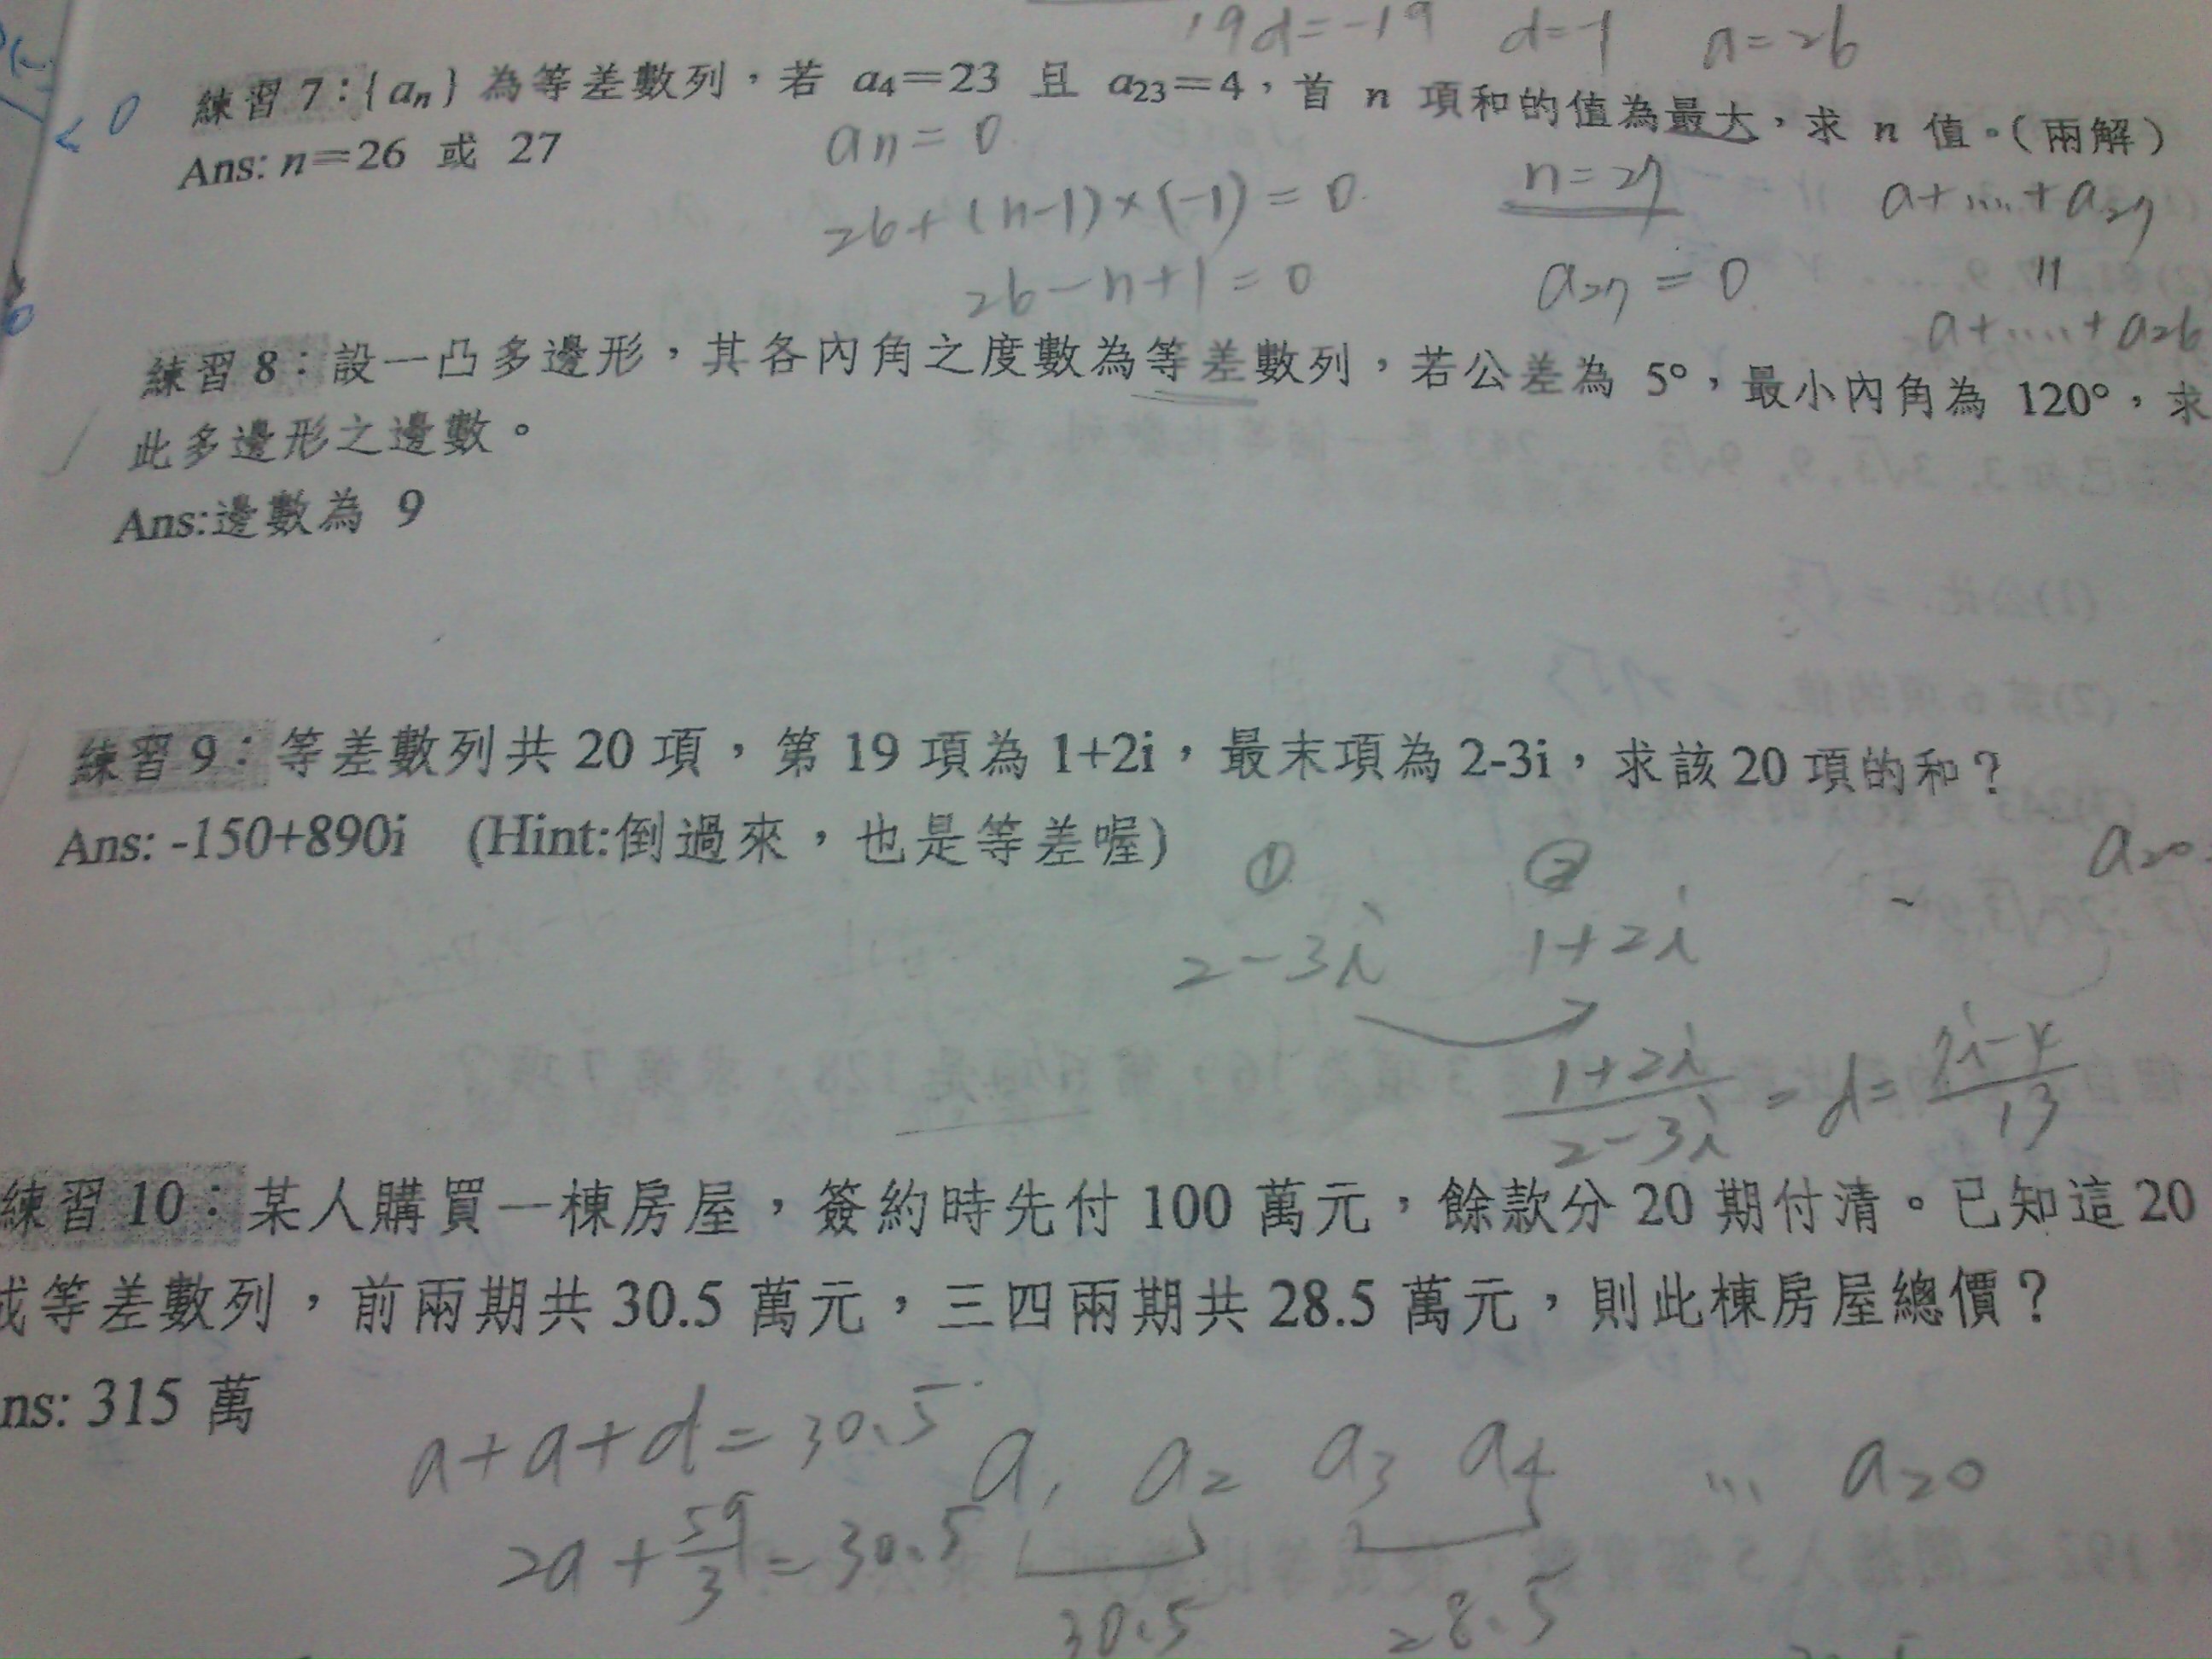 19d=-19 d=-1 a=26
練習 7：{aₙ} 為等差數列，若 a₄=23 且 a₂₃=4，首 n 項和的值為最大，求 n 值。（兩解）
<0
Ans: n=26 或 27
aₙ=0
n=27
a+....+a₂₇
26+(n-1)×(-1)=0
26-n+1=0
a₂₇=0
=
a+.....+a₂₆
練習 8：設一凸多邊形，其各內角之度數為等差數列，若公差為 5°，最小內角為 120°，求
此多邊形之邊數。
Ans:邊數為 9
練習 9：等差數列共 20 項，第 19 項為 1+2i，最末項為 2-3i，求該 20 項的和？
Ans: -150+890i (Hint:倒過來，也是等差喔)
① ②
a₂₀
2-3i 1+2i
(1+2i)/(2-3i) = d = (7i-4)/13
練習 10：某人購買一棟房屋，簽約時先付 100 萬元，餘款分 20 期付清。已知這 20
成等差數列，前兩期共 30.5 萬元，三四兩期共 28.5 萬元，則此棟房屋總價？
ns: 315 萬
a+a+d=30.5
a₁ a₂ a₃ a₄ ... a₂₀
2a+59/3=30.5
30.5 28.5